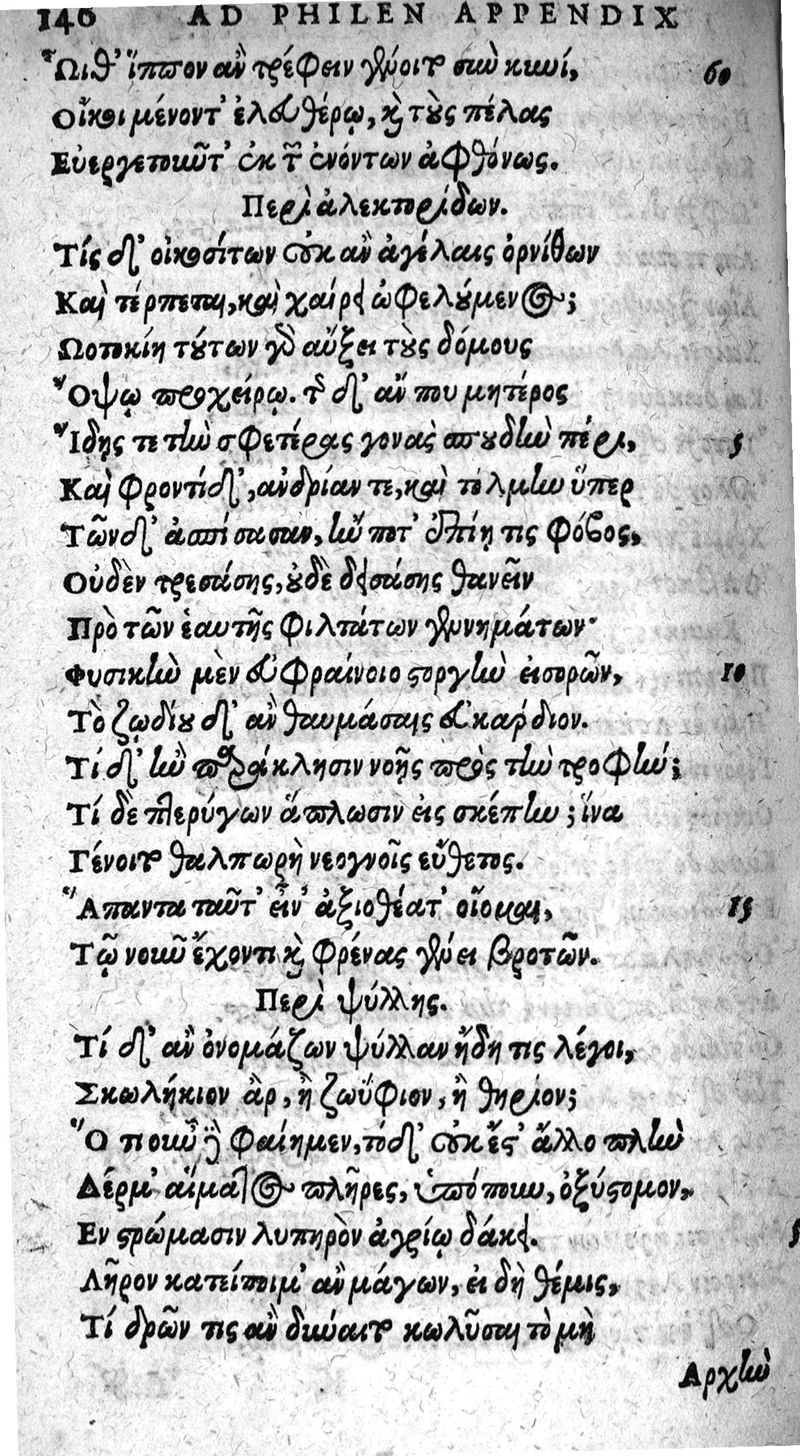 140 AD PHILEN APPENDIX
Ὧιθ' ἵππον ἂν τρέφειν γένοιτο σὺν κυνί, 60
Οἴκοι μένοντ' ἐλευθέρῳ, καὶ τοὺς πέλας
Εὐεργετοῦντ' ἐκ τῶν ἐνόντων ἀφθόνως.
Περὶ ἀλεκτορίδων.
Τίς δ' οἰκοσίτων οὐκ ἂν ἀγέλαις ὀρνίθων
Καὶ τέρπεται, καὶ χαίρει ὠφελούμενος;
Ωοτοκίη τούτων γὰρ αὔξει τοὺς δόμους
Ὄψῳ προχείρῳ. τὴν δ' ἄν που μητέρος
Ἴδῃς τε τὴν σφετέρας γονὰς σπουδὴν πέρι, 5
Καὶ φροντίδ', ἀνδρίαν τε, καὶ τόλμην ὕπερ
Τῶνδ' ἀσπίσασαν, ἤν ποτ' ἐπίῃ τις φόβος,
Οὐδὲν τρεσάσης, οὐδὲ δεισάσης θανεῖν
Πρὸ τῶν ἑαυτῆς φιλτάτων γεννημάτων·
Φυσικὴν μὲν εὐφραίνοιο στοργὴν εἰσορῶν, 10
Τὸ ζωδίου δ' ἂν θαυμάσαις εὐκάρδιον.
Τί δ' ἢν παράκλησιν νοῇς πρὸς τὴν τροφήν;
Τί δὲ πτερύγων ἅπλωσιν εἰς σκέπην; ἵνα
Γένοιτο θαλπωρὴ νεογνοῖς εὔθετος.
Ἅπαντα ταῦτ' εἶν' ἀξιοθέατ' οἴομαι, 15
Τῷ νοῦν ἔχοντι καὶ φρένας γένει βροτῶν.
Περὶ ψύλλης.
Τί δ' ἂν ὀνομάζων ψύλλαν ἤδη τις λέγοι,
Σκωλήκιον ἂρ, ἢ ζωΰφιον, ἢ θηρίον;
Ὅ τι οὖν φαίημεν, τόδ' οὐκ ἔστ' ἄλλο πλὴν
Δέρμ' αἵματος πλῆρες, ὑπόπουν, ὀξύστομον,
Εν στρώμασιν λυπηρὸν ἀγρίῳ δάκει. 5
Λῆρον κατείποιμ' ἂν μάγων, εἰ δὴ θέμις,
Τί δρῶν τις ἂν δύναιτο κωλῦσαι τὸ μὴ
Αρχὴν